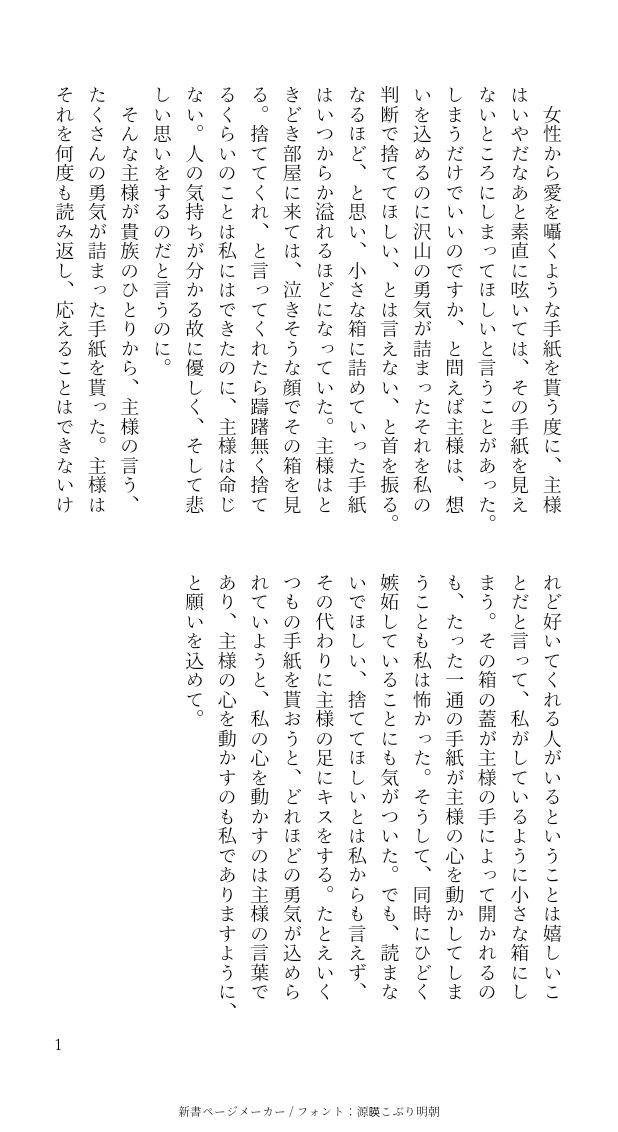 女性から愛を囁くような手紙を貰う度に、主様
はいやだなあと素直に呟いては、その手紙を見え
ないところにしまってほしいと言うことがあった。
しまうだけでいいのですか、と問えば主様は、想
いを込めるのに沢山の勇気が詰まったそれを私の
判断で捨ててほしい、とは言えない、と首を振る。
なるほど、と思い、小さな箱に詰めていった手紙
はいつからか溢れるほどになっていた。主様はと
きどき部屋に来ては、泣きそうな顔でその箱を見
る。捨ててくれ、と言ってくれたら躊躇無く捨て
るくらいのことは私にはできたのに、主様は命じ
ない。人の気持ちが分かる故に優しく、そして悲
しい思いをするのだと言うのに。
そんな主様が貴族のひとりから、主様の言う、
たくさんの勇気が詰まった手紙を貰った。主様は
それを何度も読み返し、応えることはできないけ
れど好いてくれる人がいるということは嬉しいこ
とだと言って、私がしているように小さな箱にし
まう。その箱の蓋が主様の手によって開かれるの
も、たった一通の手紙が主様の心を動かしてしま
うことも私は怖かった。そうして、同時にひどく
嫉妬していることにも気がついた。でも、読まな
いでほしい、捨ててほしいとは私からも言えず、
その代わりに主様の足にキスをする。たとえいく
つもの手紙を貰おうと、どれほどの勇気が込めら
れていようと、私の心を動かすのは主様の言葉で
あり、主様の心を動かすのも私でありますように、
と願いを込めて。
1
新書ページメーカー / フォント：源暎こぶり明朝